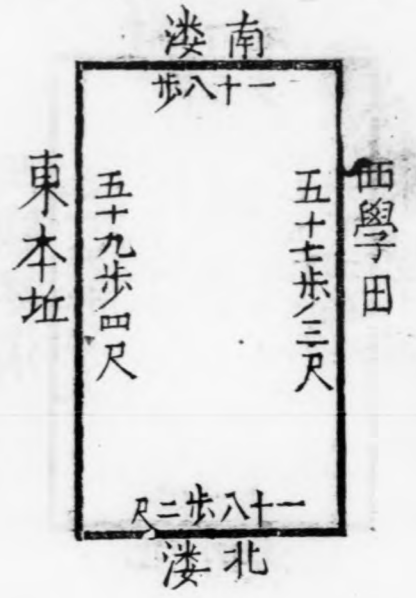 南溇
一十八步
西學田
五十七步三尺
五十九步四尺
東本坵
一十八步二尺
北溇